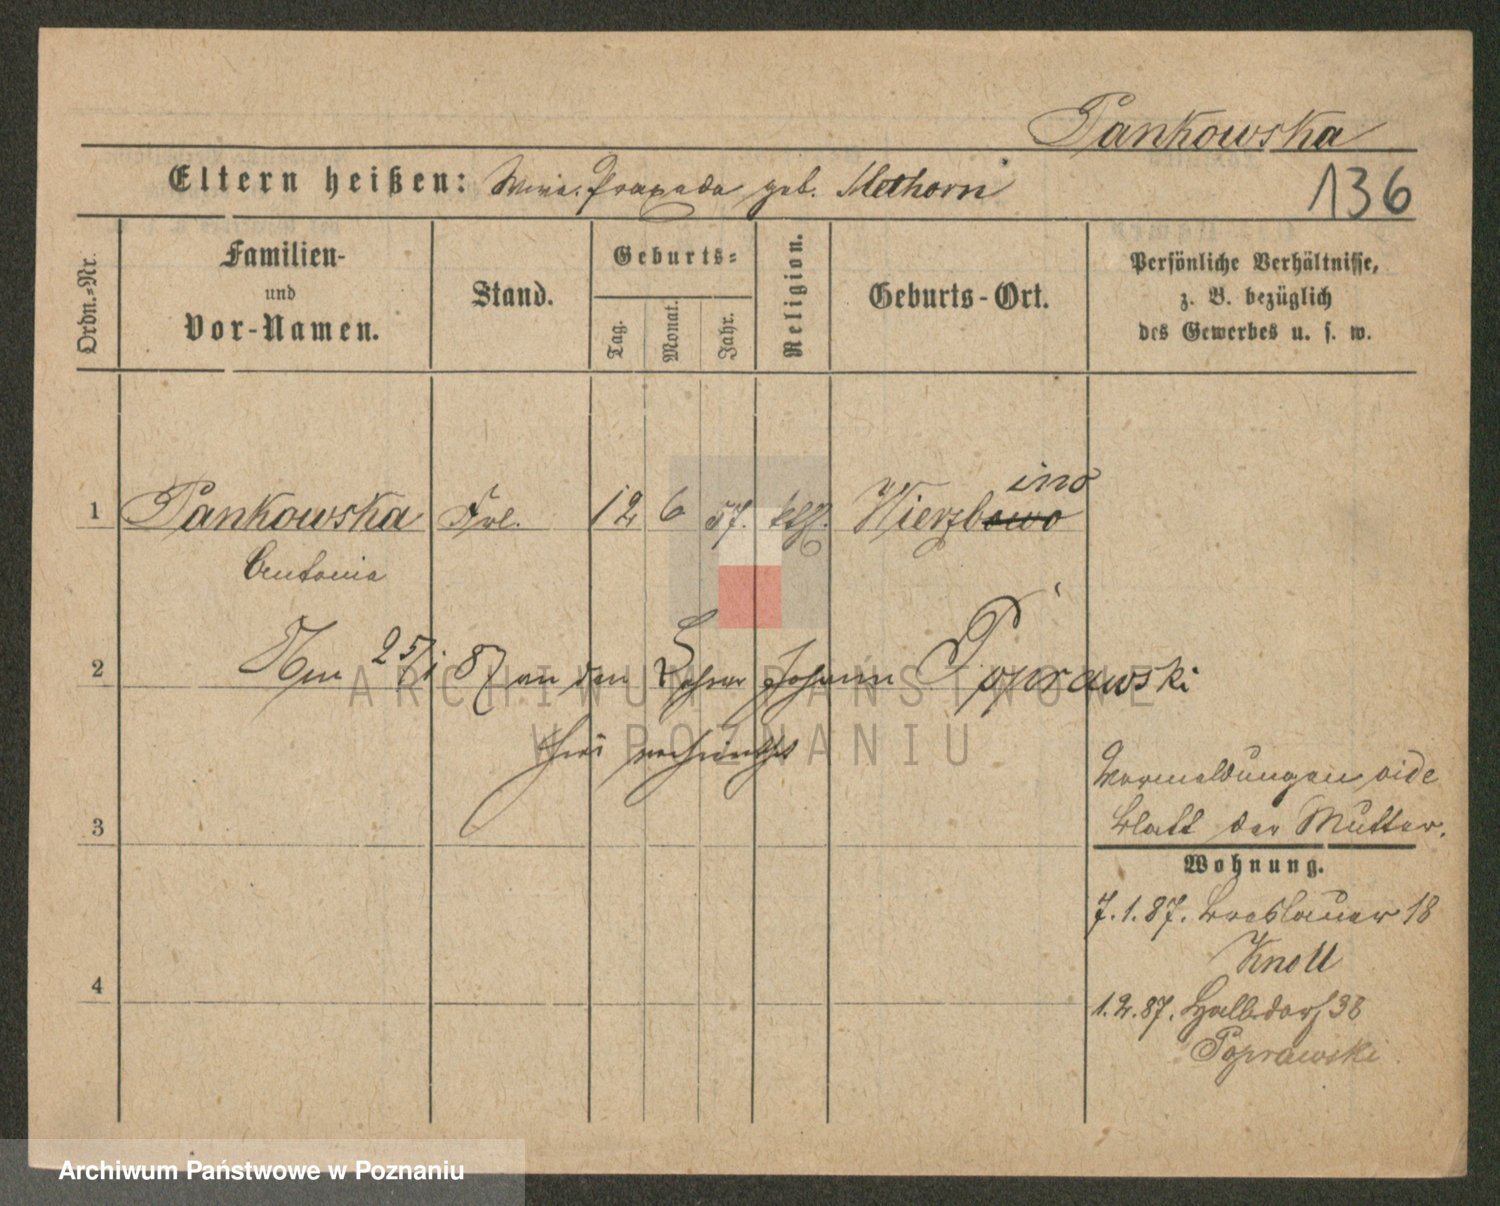 Pankowska
Eltern heißen: Wwe. geb. Methorn
136
Ordn.-Nr.
Familien-
und
Vor-Namen.
Stand.
Geburts-
Tag.
Monat.
Jahr.
Religion.
Geburts-Ort.
Persönliche Verhältnisse,
z. B. bezüglich
des Gewerbes u. s. w.
1 Pankowska Frl. 12 6 57. kth. Wierzbowo ino
Antonia
2 Am 25/1 87 an den Lehrer Johann Poprawski
hier verheirathet
3
Vermeldungen vide
Blatt der Mutter.
Wohnung.
7.1.87. Breslauer 18
Knoll
4
1.2.87. Halbdorf 38
Poprawski
ARCHIWUM PAŃSTWOWE
W POZNANIU
Archiwum Państwowe w Poznaniu